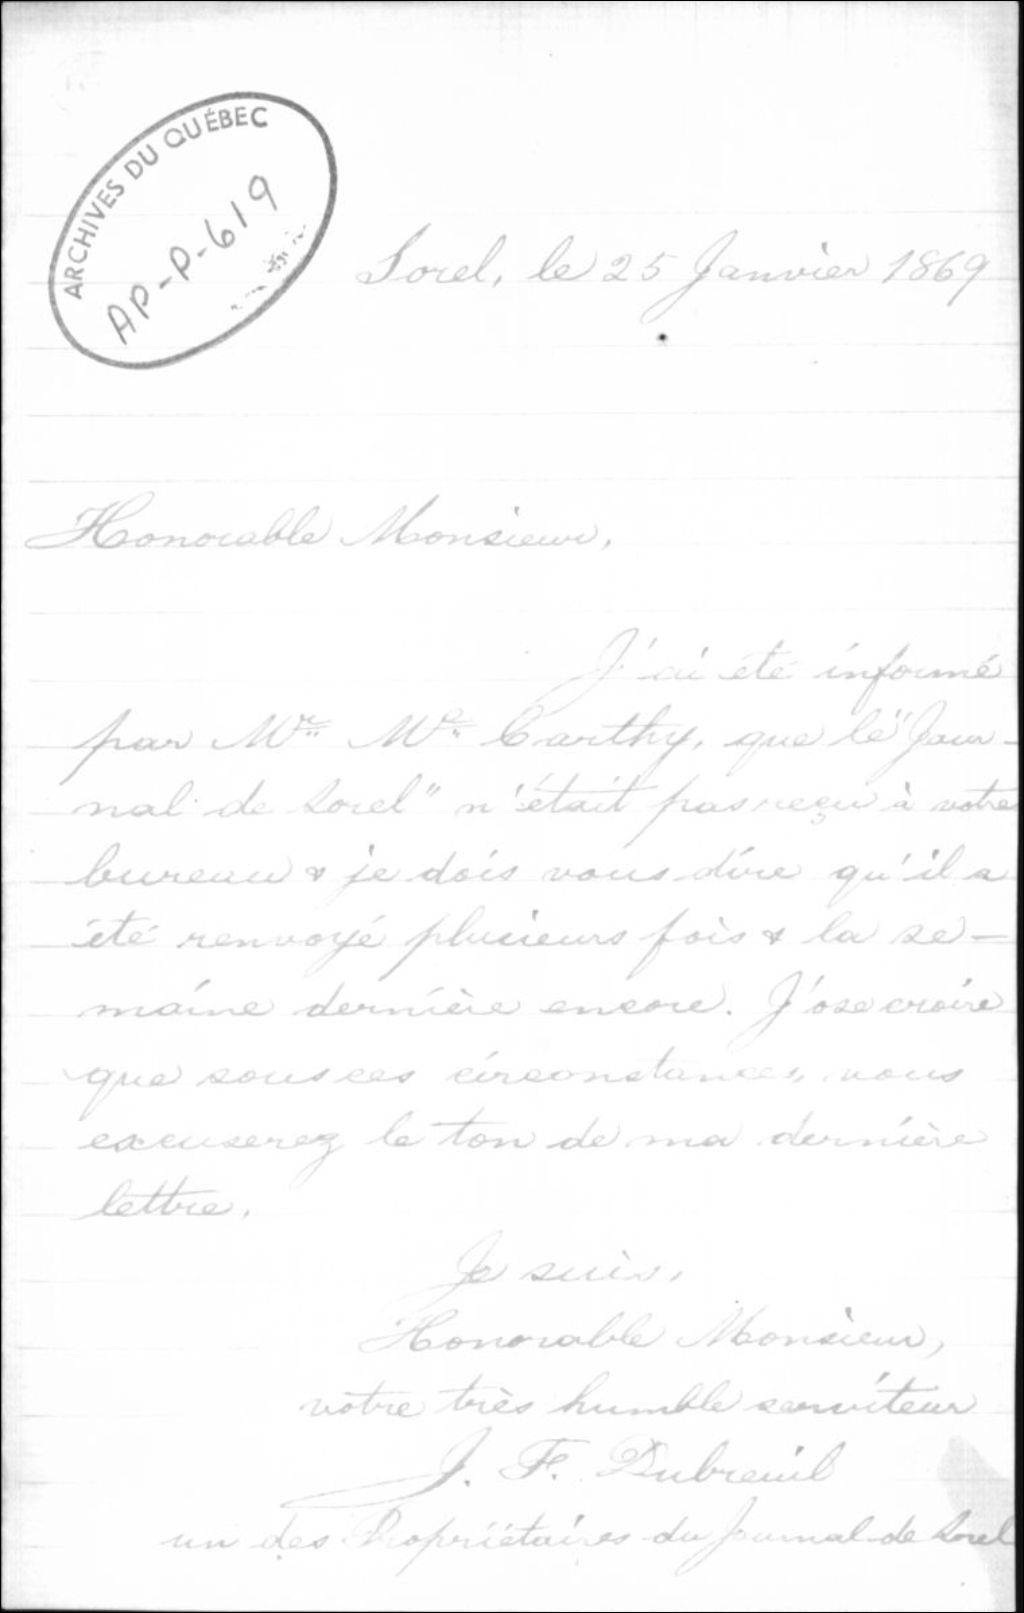 ARCHIVES DU QUÉBEC
AP-P-619
Sorel, le 25 Janvier 1869
Honorable Monsieur,
J'ai été informé
par Mr. Mc. Carthy, que le "Jour-
nal de Sorel" n'était pas reçu à votre
bureau & je dois vous dire qu'il a
été renvoyé plusieurs fois & la se-
maine dernière encore. J'ose croire
que sous ces circonstances, vous
excuserez le ton de ma dernière
lettre.
Je suis,
Honorable Monsieur,
votre très humble serviteur
J. F. Dubreuil
un des Propriétaires du Journal de Sorel